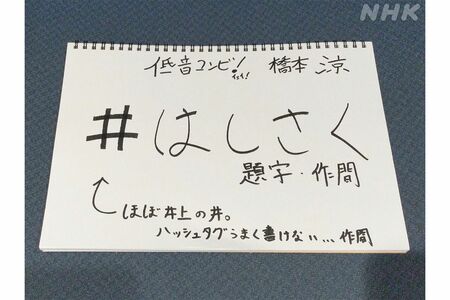 NHK
低音コンビ! 橋本 涼
イェイ!
#はしさく
題字・作間
ほぼ井上の井。
ハッシュタグうまく書けない…作間